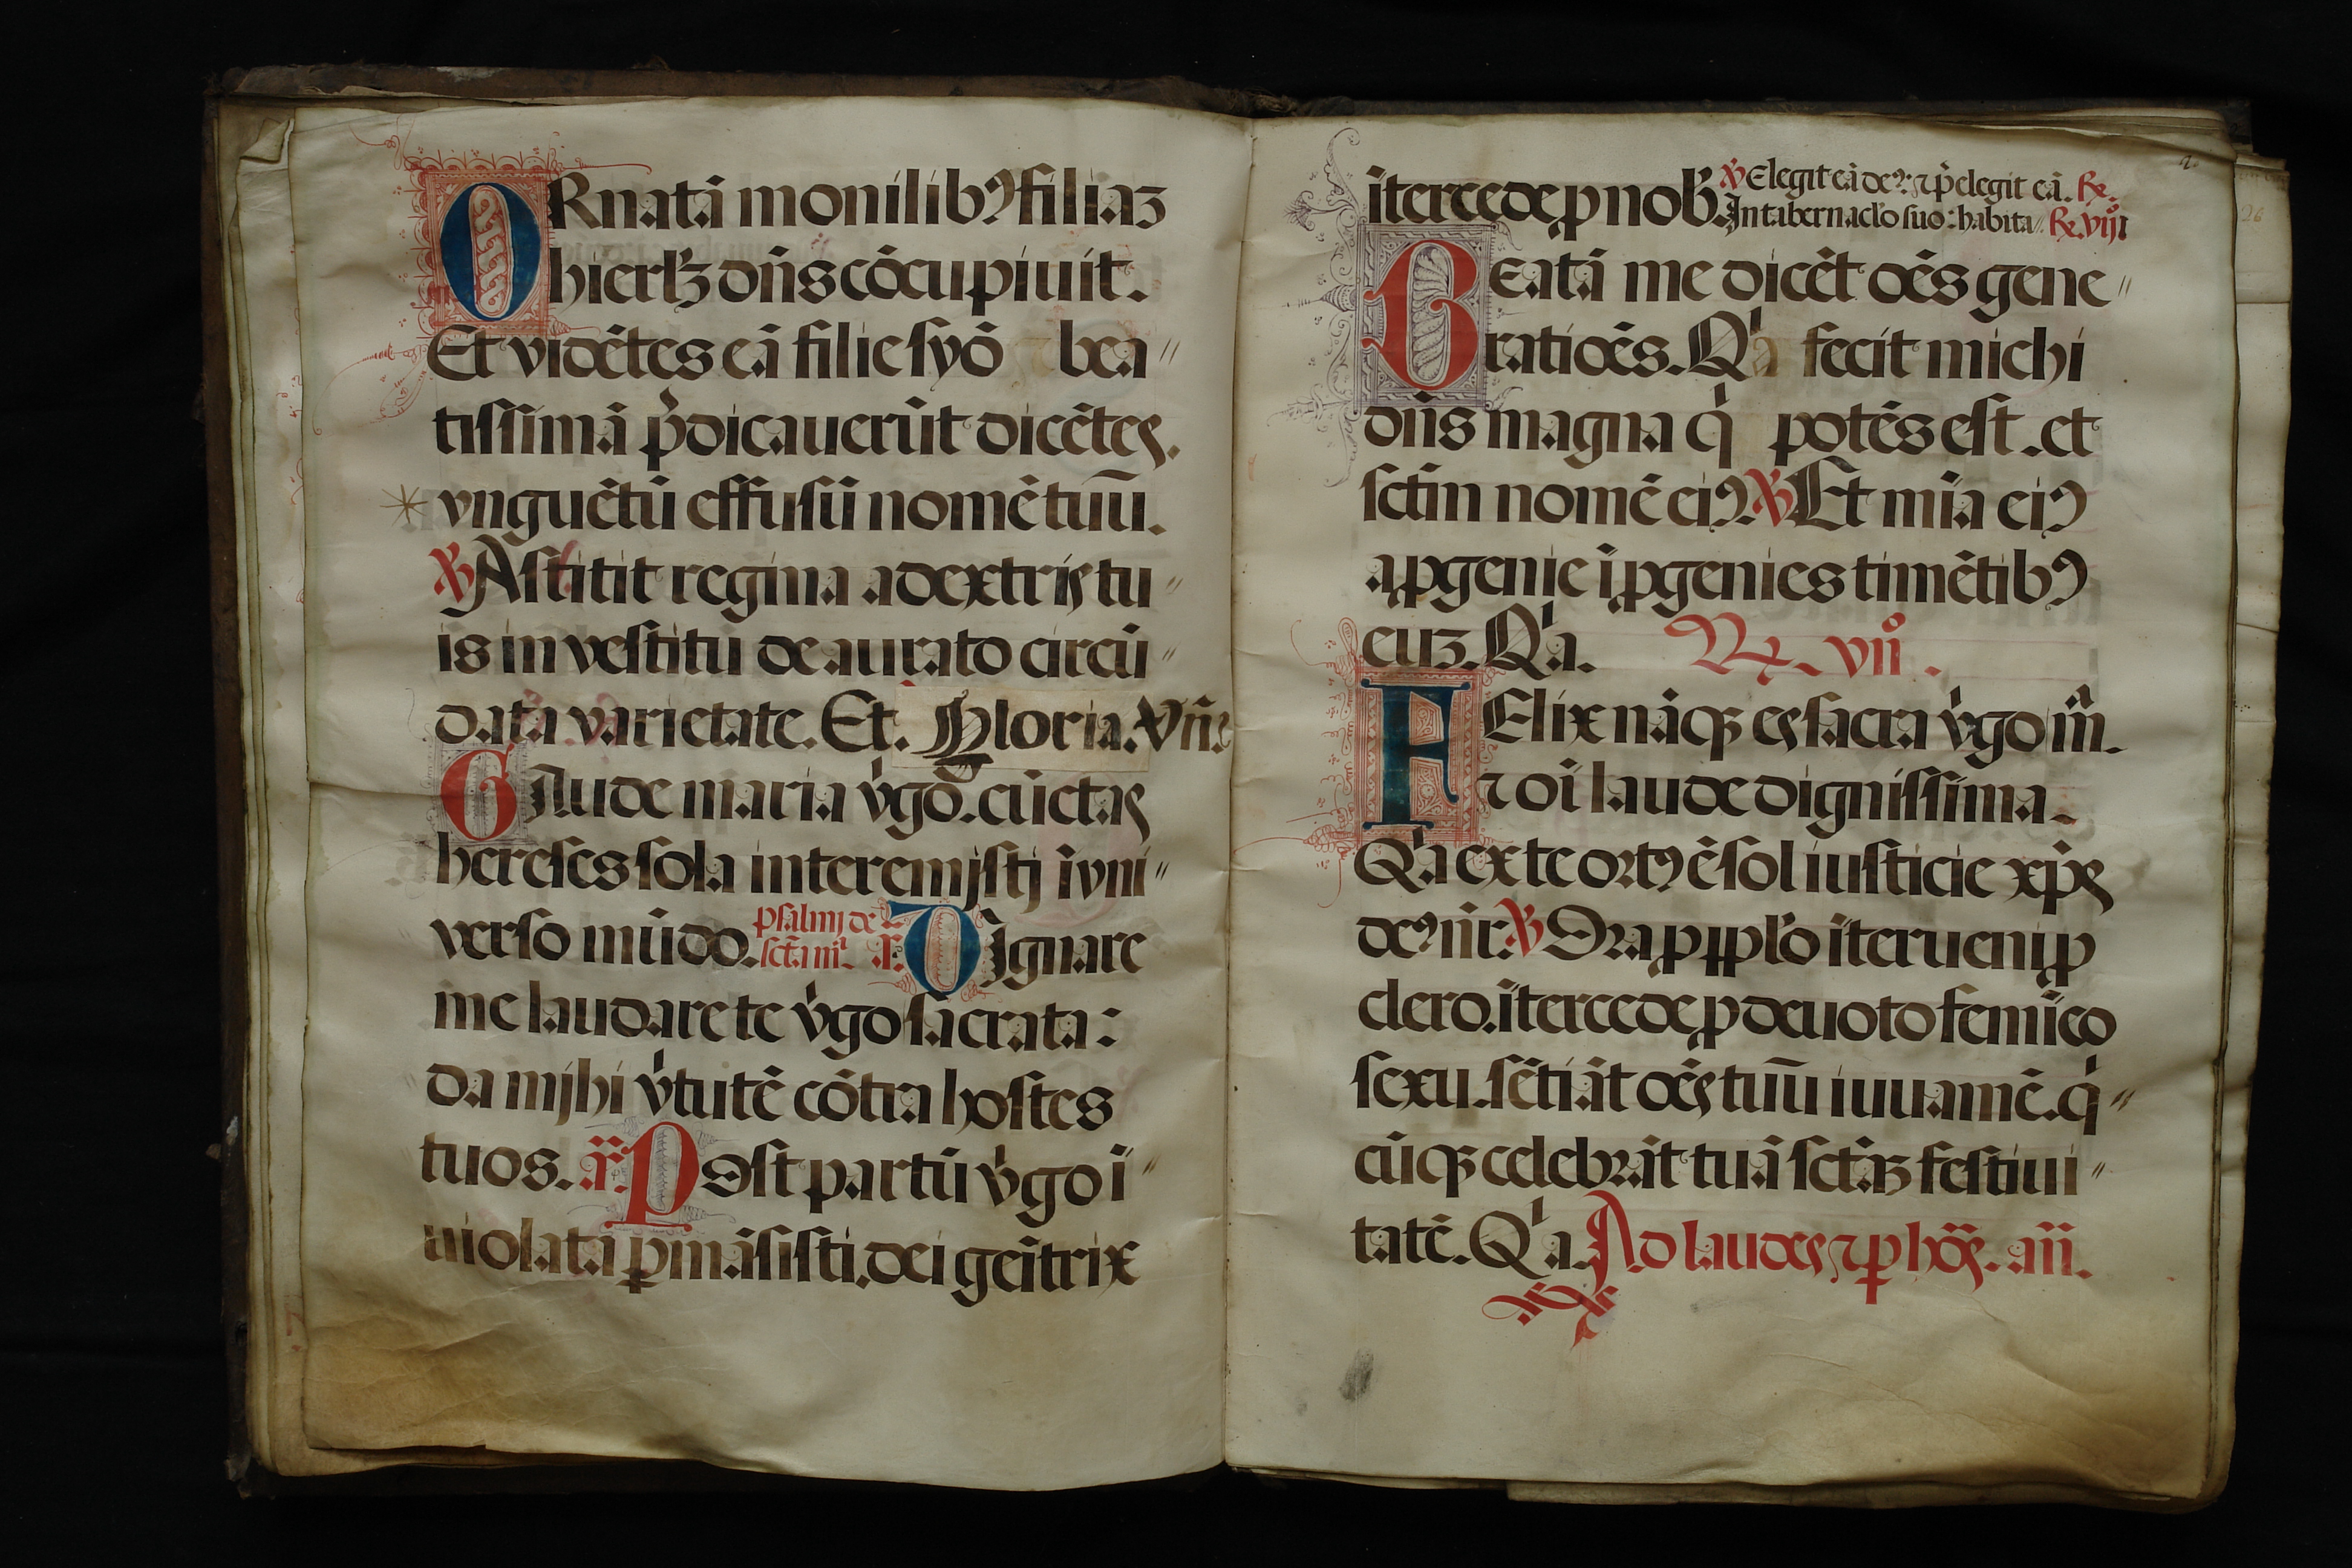 ORnatā monilibꝰ filiaꝫ
hierlꝫ dn̄s cōcupiuit.
Et vidētes eā filie syō bea〃
tissimā p̄dicauerūt dicētes.
vnguētū effusū nomē tuū.
℣ Astitit regina adextris tu〃
is in vestitu deaurato circū〃
data varietate. Et. Gloria. Vn̄g
GAude maria v̓go. cūctas
hereses sola interemjstj ī vni〃
verso mūdo. psalmj de
sctā mr̄. ā. DJgnare
me laudare te v̓go sacrata:
da mjhi v̓tutē cōtra hostes
tuos. ā. POst partū v̓go ī〃
uiolata ꝑmāsisti. dei geītrix
ītercede ꝓ nob̓. ℣ Elegit eā deꝰ: ⁊ p̄elegit eā. ℞.
In tabernac̓lo suo: habita〃 ℞. viijº
BEatā me dicēt oēs gene〃
ratiōes. Qꝛa fecit michi
dn̄s magna q̓ potēs est. et
sctm̄ nomē eiꝰ. ℣ Et mīa eiꝰ
a ꝓgenie ī ꝓgenies timētibꝰ
euꝫ. Qꝛa. ℞. viiº.
FElix nāqꝫ es sacra v̓go m̄.
⁊ oī laude dignissima.
Qꝛa ex te ortꝰ ē sol iusticie xp̄s
deꝰ nr̄. ℣ Ora ꝓ pplo īterueni ꝓ
clero. ītercede ꝓ deuoto femīeo
sexu. sētiāt oēs tuū iuuamē. q̓〃
cūqꝫ celebrāt tuā sctā festiui〃
tatē. Qꝛa. Ad laudes ⁊ ꝑ hōs. an̄.